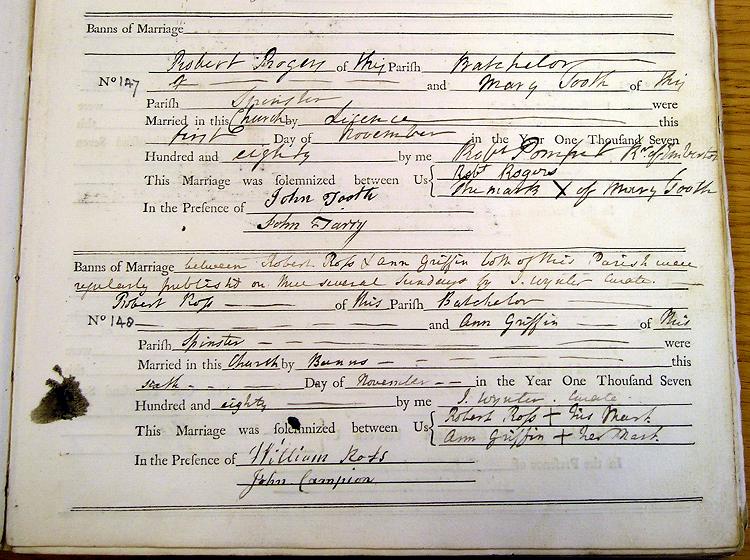 Banns of Marriage
Robert Rogers of this Parish Batchelor
No 147 & and Mary Tooth of this
Parish Spinster were
Married in this Church by Licence this
first Day of November in the Year One Thousand Seven
Hundred and eighty by me Robt Pomfret Rr of Emberton
This Marriage was solemnized between Us { Robt Rogers
The mark X of Mary Tooth
In the Presence of John Tooth
John Tarry
Banns of Marriage between Robert Ross & Ann Griffin both of this Parish were
regularly published on three several Sundays by J. Wynter Curate.
Robert Ross of this Parish Batchelor
No 148 and Ann Griffin of this
Parish Spinster were
Married in this Church by Banns this
sixth Day of November in the Year One Thousand Seven
Hundred and eighty by me J. Wynter. Curate
This Marriage was solemnized between Us { Robert Ross + his Mark
Ann Griffin + her Mark
In the Presence of William Ross
John Campion